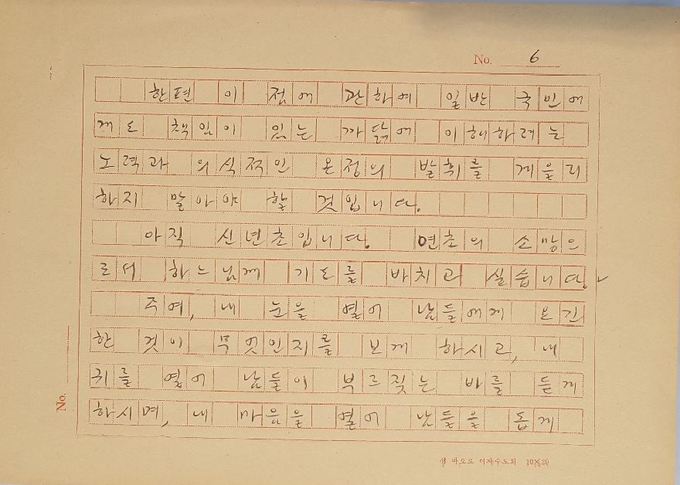 No. 6
한편 이 점에 관하여 일반 국민에
게도 책임이 있는 까닭에 이해하려는
노력과 의식적인 온정의 발휘를 게을리
하지 말아야 할 것입니다.
아직 신년초입니다. 연초의 소망으
로서 하느님께 기도를 바치고 싶습니다.
주여, 내 눈을 열어 남들에게 요긴
한 것이 무엇인지를 보게 하시고, 내
귀를 열어 남들이 부르짖는 바를 듣게
하시며, 내 마음을 열어 남들을 돕게
No.
성 바오로 여자수도회